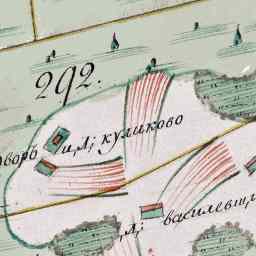 292.
дворъ
и,л; куликово
,л; василевщи